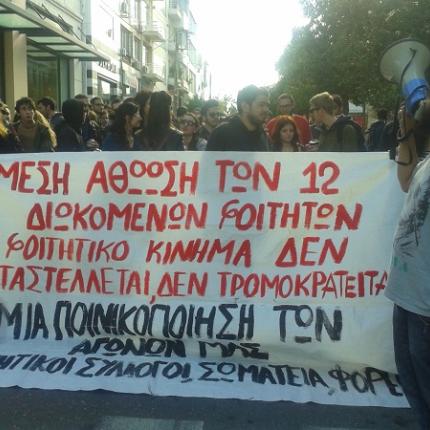 ΜΕΣΗ ΑΘΩΩΣΗ ΤΩΝ 12
ΔΙΩΚΟΜΕΝΩΝ ΦΟΙΤΗΤΩΝ
ΦΟΙΤΗΤΙΚΟ ΚΙΝΗΜΑ ΔΕΝ
ΤΑΣΤΕΛΛΕΤΑΙ, ΔΕΝ ΤΡΟΜΟΚΡΑΤΕΙΤΑ
ΜΙΑ ΠΟΙΝΙΚΟΠΟΙΗΣΗ ΤΩΝ
ΑΓΩΝΩΝ ΜΑΣ
ΗΤΙΚΟΙ ΣΥΛΛΟΓΟΙ, ΣΩΜΑΤΕΙΑ, ΦΟΡΕ